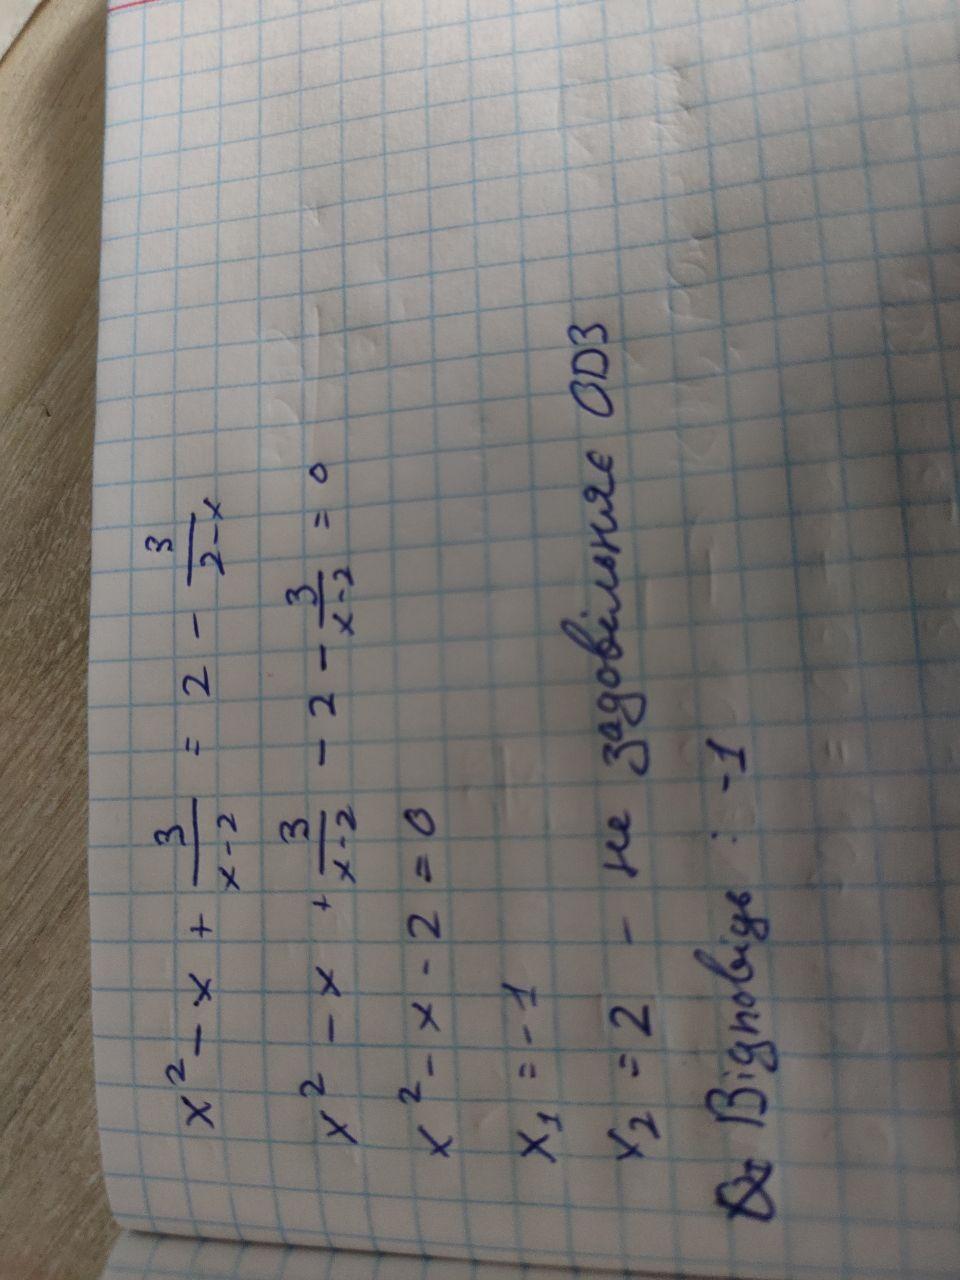 x² - x + 3/(x-2) = 2 - 3/(2-x)
x² - x + 3/(x-2) - 2 - 3/(x-2) = 0
x² - x - 2 = 0
x₁ = -1
x₂ = 2 - не задовільняє ОДЗ
Відповідь : -1